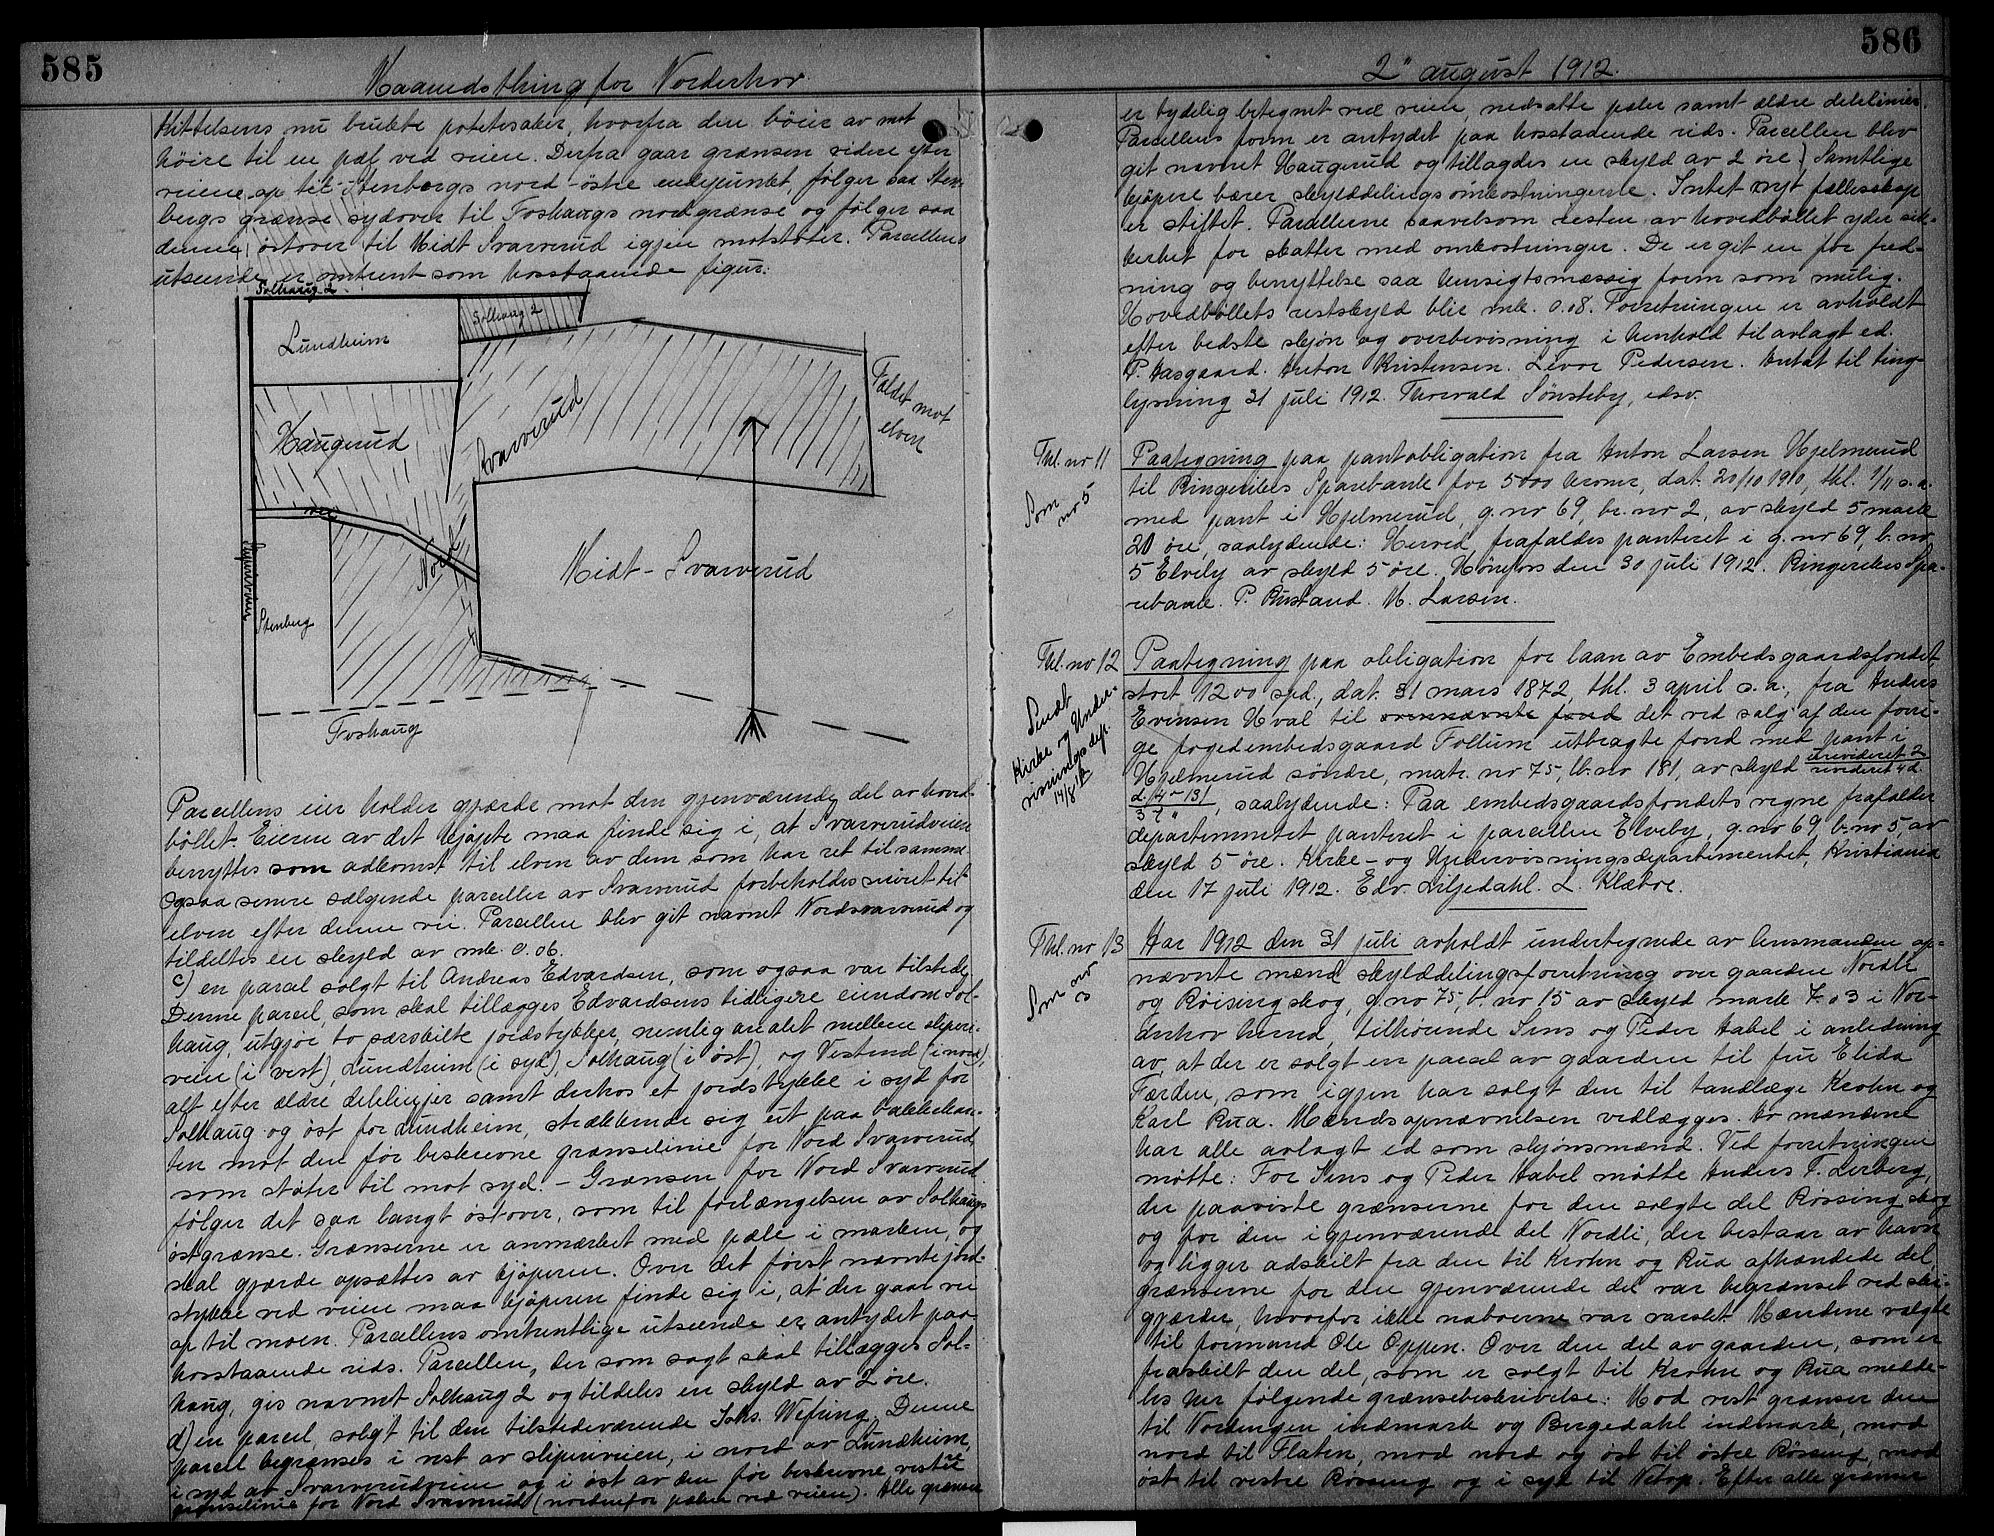 585
Maanedsthing for Norderhov
Kittelsens nu brukte potetesaker, hvorfra den böier av mot
höire til en pæl ved veien. Derfra gaar grænsen videre efter
veien op til Stenbergs nord-östre endepunkt, følger saa Sten-
bergs grænse sydover til Foshaugs nordgrænse og følger saa
denne östover til Midt Svarverud igjen motstöter. Parcellens
utseende er omtrent som hosstaaende figur:
Solhaug 2
Lundheim
Solhaug 2
Haugerud
Svarverud
Faldet mot
elven
vei
Nord
Midt-Svarverud
Sliperiveien
Stenberg
Foshaug
Parcellens eier holder gjærde mot den gjenværende del av hoved-
böllet. Eieren av det kjøpte maa finde sig i, at Svarverudveien
benyttes som adkomst til elven av dem som har ret til samme
ogsaa senere sælgende parceller av Svarverud forbeholdes veiret til
elven efter denne vei. Parcellen blev git navnet Nordsvarverud og
tildeltes en skyld av mk. 0.06.
c) en parcel solgt til Andreas Edvardsen, som ogsaa var tilstede.
Denne parcel, som skal tillægges Edvardsens tidligere eiendom Sol-
haug, utgjør to særskilte jordstykker, nemlig arealet mellem sliperi-
veien (i vest), Lundheim (i syd), Solhaug (i öst), og Vestend (i nord),
alt efter ældre delelinjer samt derhos et jordstykke i syd for
Solhaug og öst for Lundheim, strækkende sig ut paa bakkekan-
ten mot den før beskrevne grænselinie for Nord Svarverud,
som støter til mot syd. - Grænsen for Nord Svarverud
følger det saa langt östover, som til forlængelsen av Solhaugs
östgrænse. Grænserne er anmærket med pæle i marken, og
skal gjærde opsættes av kjöperen. Over det først nævnte jord-
stykke ved veien maa kjöperen finde sig i, at der gaar vei
op til moen. Parcellens omtrentlige utseende er antydet paa
hosstaaende rids. Parcellen, der som sagt skal tillægges Sol-
haug, gis navnet Solhaug 2 og tildeles en skyld av 2 øre.
d) en parcel, solgt til den tilstedeværende Johs. Wefring. Denne
parcel begrænses i vest av sliperiveien, i nord av Lundheim,
i syd av Svarverudveien og i öst av den før beskrevne vestre
grænselinie for Nord Svarverud (nordenfor pælen ved veien). Alle grænser
586
2" august 1912.
er tydelig betegnet ved veien, nedsatte pæler samt ældre delelinier.
Parcellens form er antydet paa hosstaaende rids. Parcellen blev
git navnet Haugerud og tillagdes en skyld av 2 øre. Samtlige
kjöpere bærer skylddelingsomkostningerne. Intet nyt fællesskap
er stiftet. Parcellerne saavelsom resten av hovedböllet yder sik-
kerhet for skatter med omkostninger. De er git en for fred-
ning og benyttelse saa hensigtsmæssig form som mulig.
Hovedböllets restskyld blir mk. 0.08. Forretningen er avholdt
efter bedste skjøn og overbevisning i henhold til avlagt ed.
P. Aasgaard. Anton Kristensen. Levor Pedersen. Entat til ting-
lysning 31 juli 1912. Thorvald Sönsteby, edsv.
Thl. nr 11
Som
nr 5
Paategning paa pantobligation fra Anton Larsen Hjelmerud
til Ringerikes Sparebank for 5000 kroner, dat. 20/10 1910, thl. 1/11 s.a.
med pant i Hjelmerud, g.nr 69, br.nr 2, av skyld 5 mark
20 øre, saalydende: Herved frafaldes panteret i g.nr 69, b.nr
5 Elvely av skyld 5 øre. Hønefos den 30 juli 1912. Ringerikes Spa-
rebank. P. Rustand. M. Larsen.
Thl. nr 12
Sendt
Kirke og Under-
visningsdep.
14/8 12
Paategning paa obligation for laan av Embedsgaardsfondet
stort 1200 spd., dat. 31 mars 1872, thl. 3 april s.a., fra Anders
Evensen Hval til ovennævnte fond det ved salg af den forri-
ge fogedembedsgaard Follum utbragte fond med pant i
Hjelmerud söndre, matr. nr 75, lb.nr 181, av skyld urevideret 2
revideret 4 d.
d. 4 - 13/
3 2 ", saalydende: Paa embedsgaardsfondets vegne frafalder
departementet panteret i parcellen Elveby, g.nr 69 b.nr 5, av
skyld 5 øre. Kirke- og Undervisningsdepartementet, Kristiania
den 17 juli 1912. Edv. Liljedahl. L. Klæboe.
Thl. nr 13
Som nr
Aar 1912 den 31 juli avholdt undertegnede av lensmanden op-
nævnte mænd skylddelingsforretning over gaarden Nordli
og Röisingskog, g.nr 75, b.nr 15 av skyld mark 7.03 i Nor-
derhov herred, tilhørende Jens og Peder Habel i anledning
av, at der er solgt en parcel av gaarden til fru Elida
Færden, som igjen har solgt den til tandlæge Krohn og
Karl Rua. Mændsopnævnelsen vedlægges. Av mændene
har alle avlagt ed som skjønsmænd. Ved forretningen
møtte: For Jens og Peder Habel møtte Anders T. Lerberg,
der paaviste grænserne for den solgte del Rossing skog
og for den igjenværende del Nordli, der bestaar av havn
og ligger adskilt fra den til Krohn og Rua afhændede del,
grænserne for den gjenværende del var begrænset ved ski-
gjærder, hvorfor ikke naboerne var varslet. Mændene valgte
til formand Ole Oppen. Over den del av gaarden, som er
fraskilt den del, som er solgt til Krohn og Rua medde-
les her følgende grænsebeskrivelse: Mod vest grænser den
til Nordengen indmark og Bergedahl indmark, mod
nord til Flaten, mod nord og öst til östre Røssing, mod
öst til vestre Røssing og i syd til Vetop. Efter alle grænser